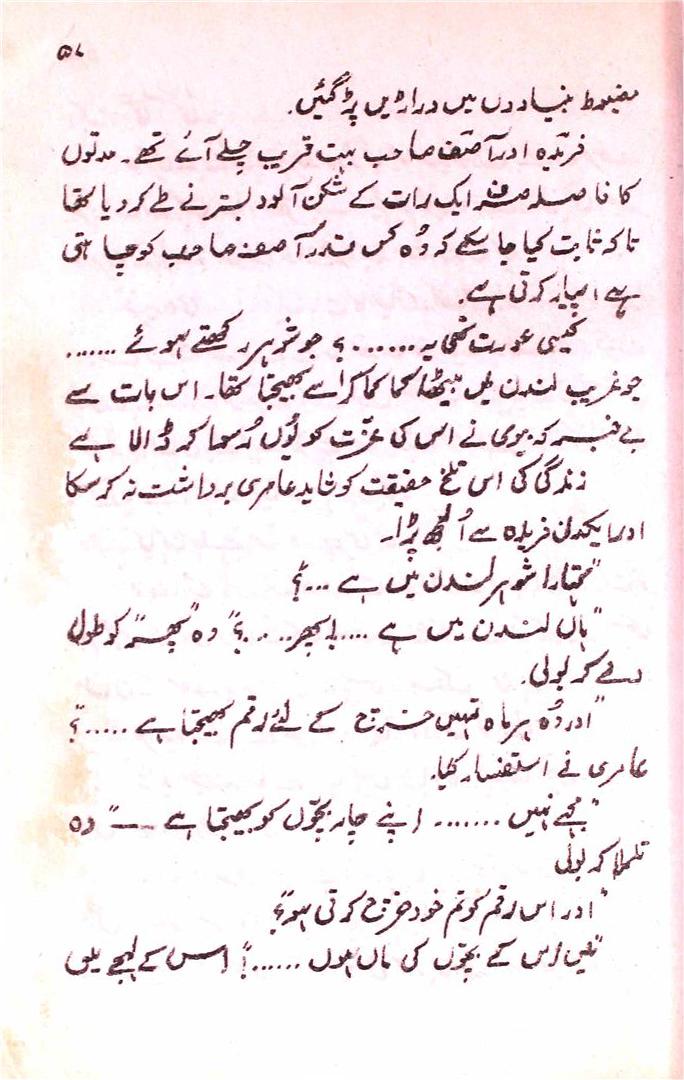 ۵۷
مضبوط بنیادوں میں دراڑیں پڑ گئیں۔
فریدہ اور آصف صاحب بہت قریب چلے آئے تھے۔ مدتوں
کا فاصلہ صرف ایک رات کے شکن آلود بستر نے طے کر دیا تھا
تاکہ ثابت کیا جا سکے کہ وُہ کس قدر آصف صاحب کو چاہتی
ہے، پیار کرتی ہے۔
کیسی عورت تھی یہ ......؟ جو شوہر رکھتے ہوئے .......
جو غریب لندن میں بیٹھا کما کما کر اسے بھیجتا تھا۔ اس بات سے
بے خبر کہ بیوی نے اس کی عزّت کو یُوں رُسوا کر ڈالا ہے
زندگی کی اس تلخ حقیقت کو شاید عامری برداشت نہ کر سکا
اور ایکدن فریدہ سے اُلجھ پڑا۔
"تمہارا شوہر لندن میں ہے ...؟"
"ہاں لندن میں ہے .... پھر.. . .؟" وہ "پھر" کو طول
دے کر بولی۔
"اور وُہ ہر ماہ تمہیں خرچ کے لئے رقم بھیجتا ہے .....؟"
عامری نے استفسار کیا۔
"مجھے نہیں ....... اپنے چار بچّوں کو بھیجتا ہے ——" وہ
تلملا کر بولی
"اور اس رقم کو تم خود خرچ کرتی ہو؟"
"میں اس کے بچّوں کی ماں ہوں ......!" اس کے لہجے میں